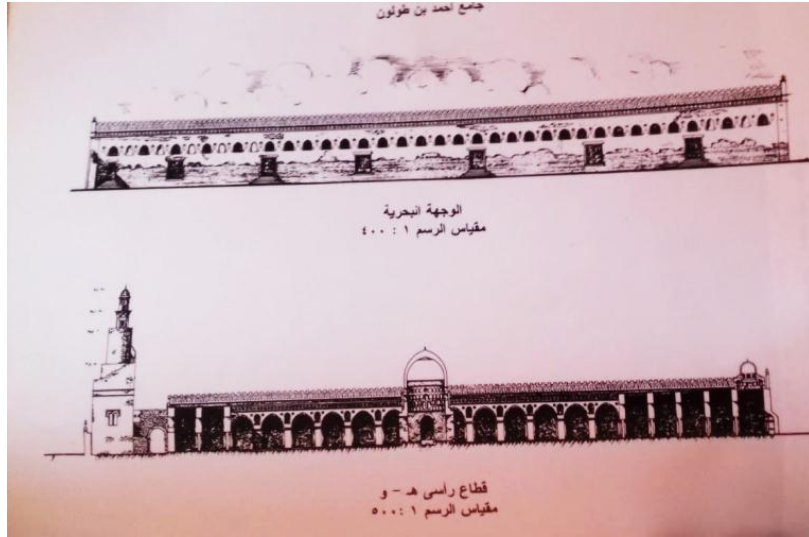 جامع احمد بن طولون
الوجهة البحرية
مقياس الرسم ١ : ٤٠٠
قطاع رأسى هـ - و
مقياس الرسم ١ : ٥٠٠